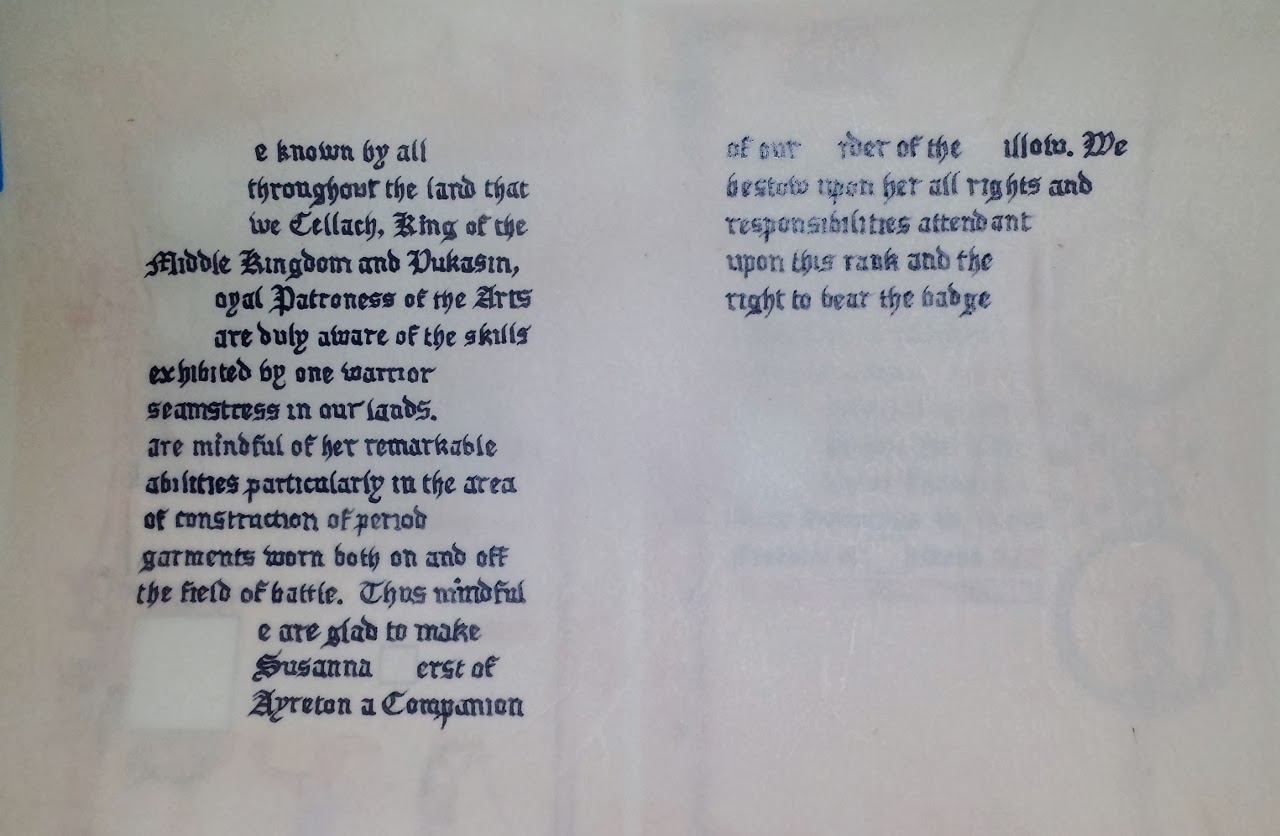 e known by all
throughout the land that
we Cellach, King of the
Middle Kingdom and Vukasin,
oyal Patroness of the Arts
are duly aware of the skills
exhibited by one warrior
seamstress in our lands.
are mindful of her remarkable
abilities particularly in the area
of construction of period
garments worn both on and off
the field of battle. Thus mindful
e are glad to make
Susanna erst of
Ayreton a Companion
of our rder of the illow. We
bestow upon her all rights and
responsibilities attendant
upon this rank and the
right to bear the badge